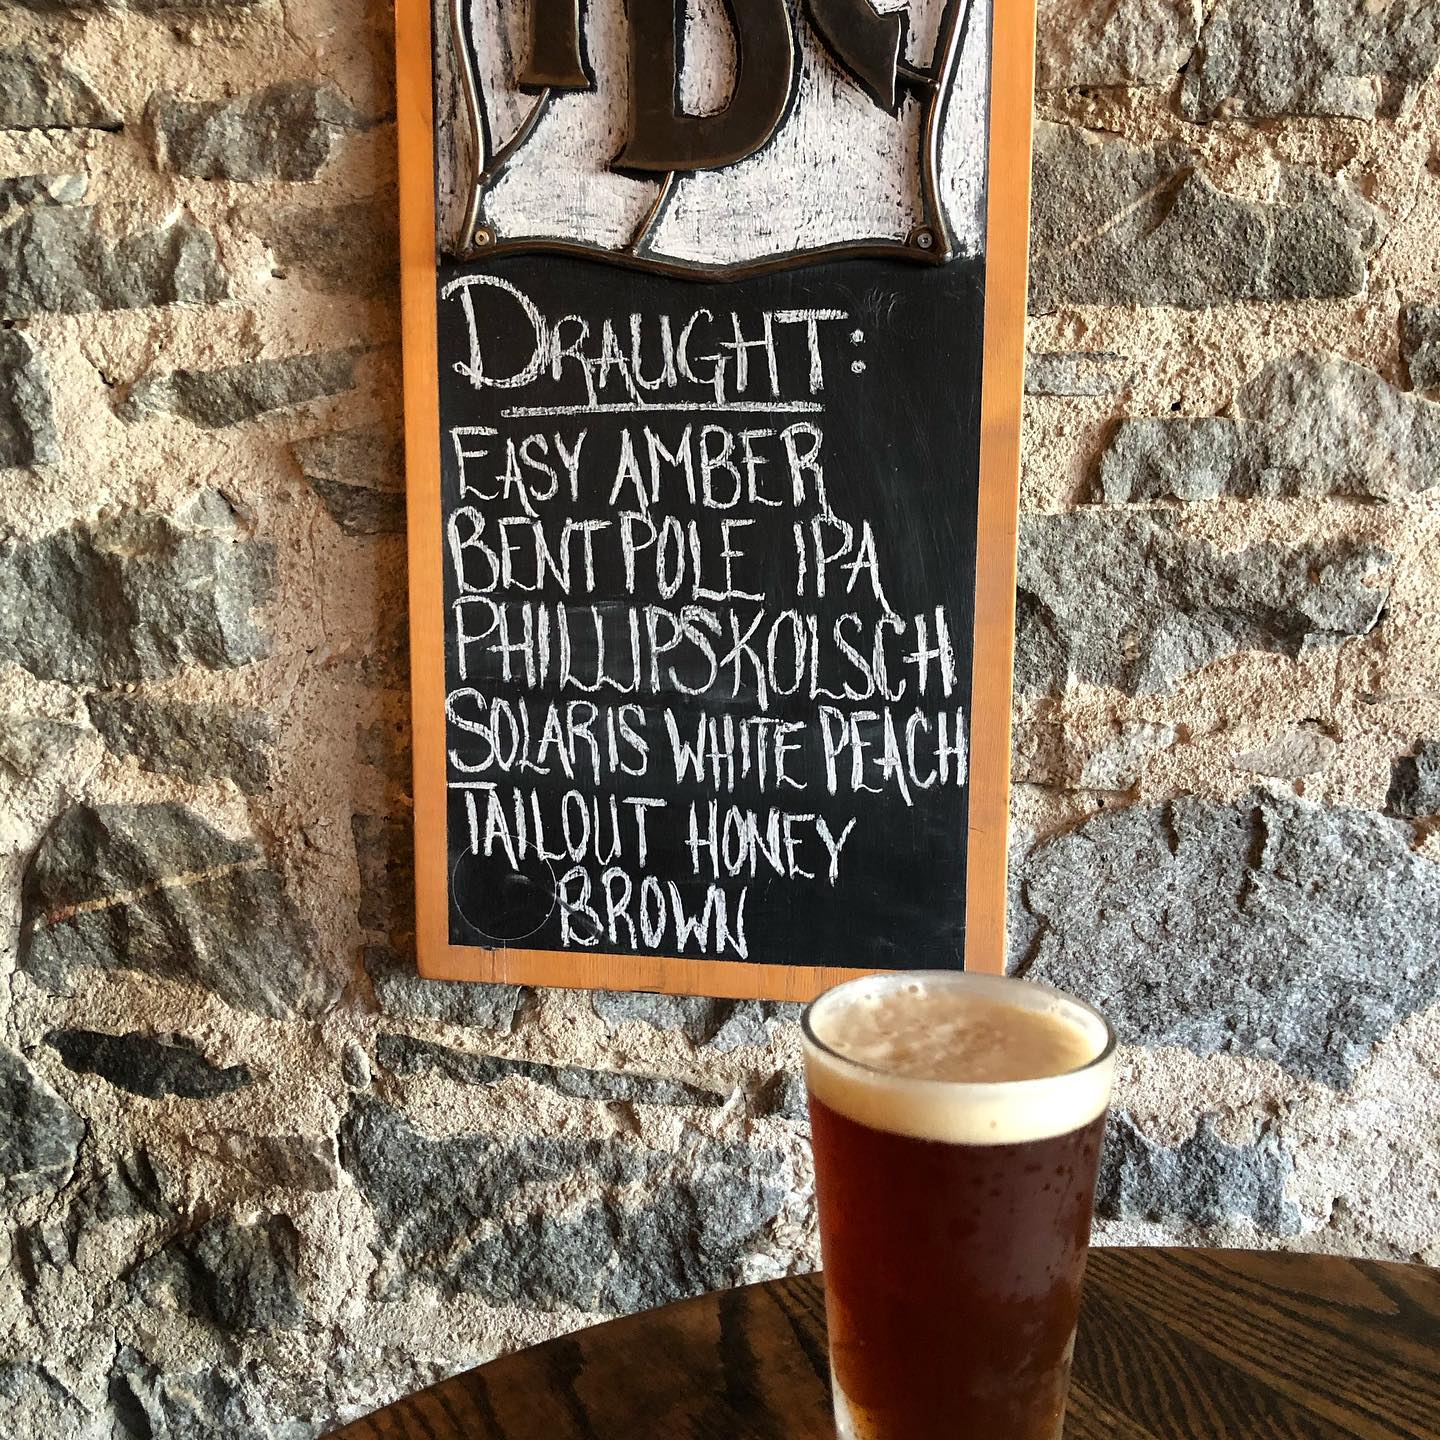 DRAUGHT:
EASY AMBER
BENT POLE IPA
PHILLIPS KOLSCH
SOLARIS WHITE PEACH
TAILOUT HONEY
BROWN